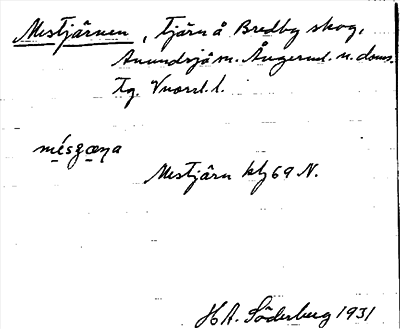 Mestjärnen, tjärn å Bredby skog,
Anundsjö sn. Ångerml. n. doms.
Tg. Vnorrl. l.
Mestjärn kbl 69 N.
H A. Söderberg 1931